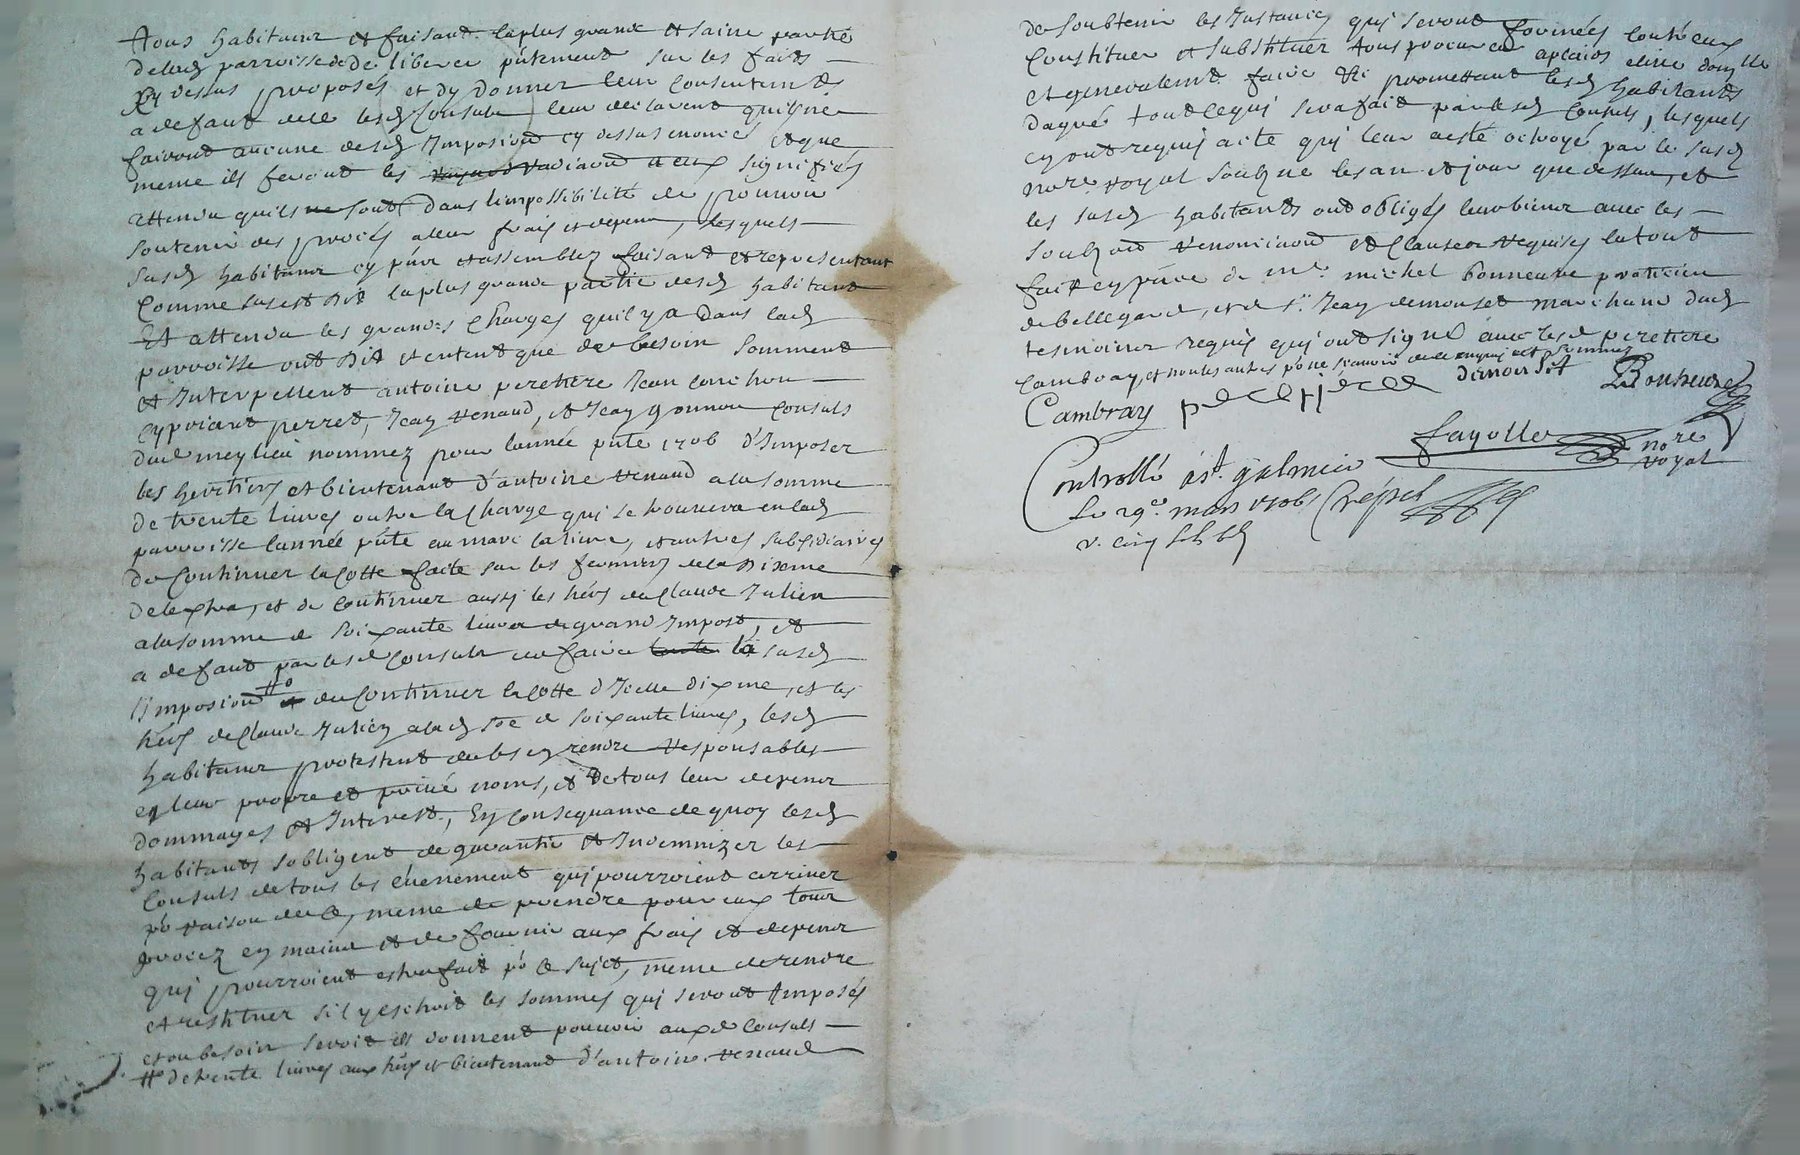 Tous habitans et faisant la plus grande et saine partie
de lad parroisse de deliberer pntement sur les faits
Cy dessus proposés et dy donner leur Consentement
a defaut de ce lesd Consuls leur declarent quil ne
fairont aucune desd Imposiond cy dessus enoncé et que
meme ils feront les a eux signifiés
attendu quils ne sont dans limpossibilité de pouvoir
soutenir des procés a leur frais et depens, lesquels
susd habitans cy pnts et assemblez faisant et representant
Comme dit est la plus grande partie desd habitans
Et attendu les grandes Charges quil y a dans lad
parroisse ont dit et entent que de besoin somment
et Interpellent antoine peretiere Jean Conchon
cyprient perret, Jean renaud, et Jean gonnon Consuls
dud meylieu nommez pour lannée pnte 1706 d'Imposer
les heritiers et bientenant d'antoine renaud a la somme
de trente livres outre la Charge qui se trouvera en lad
parroisse lannée pnte au marc la livre, et autres subsidiaires
de Continuer la Cotte faite sur les fermiers de la dixme
de , et de Continuer aussy les hers de Claude Julien
a la somme de soixante livres de grand Impost, et
a defaut par lesd Consuls de faire la susd
Imposiond de Continuer la Cotte d'Icelle dixme, et les
hers de Claude Julien a lad soe de soixante livres, lesd
habitans protestent de les en rendre responsables
en leur propre et privé noms, et de tous leur depens
dommages et Interest, En Consequance de quoy lesd
habitants sobligent de garantir et Indemnizer les
Consuls de tous les evenement qui pourroient arriver
po raison de ce, meme de prendre pour eux tous
procez en main et de fournir aux frais et depens
qui pourroient estre fait po ce sujet, meme de rendre
et restituer sil y eschoit les sommes qui seront Imposés
et ou besoin seroit ils donnent pouvoir auxd Consuls
# de trente livres aux hers et bientenant d'antoine renaud
de soubtenir les Instances qui seront formées contre eux
Constituer et substituer tous procureur elire domlle
et generalemt faire &c promettant lesd habitants
dagreer tout ce qui sera fait par lesd Consuls, lesquels
cy ont requis acte qui leur a esté octroyé par le susd
nore royal soubzne les an et jour que dessus, et
les susd habitants ont obligés leur biens avec les
soubzond renonciaond et Clauses requises le tout
fait en pnce de mre michel bonneure praticien
de bellegarde, et de sr Jean demouset marchand dud
tesmoins requis qui ont signé avec lesd peretiere
Cambray, et non les autres po ne scavoir de ce enquis et sommez
Cambray peretiere Bonheure
fayolle nore
royal
Controllé a st galmier
le 29e mars 1706
r. cinq sols